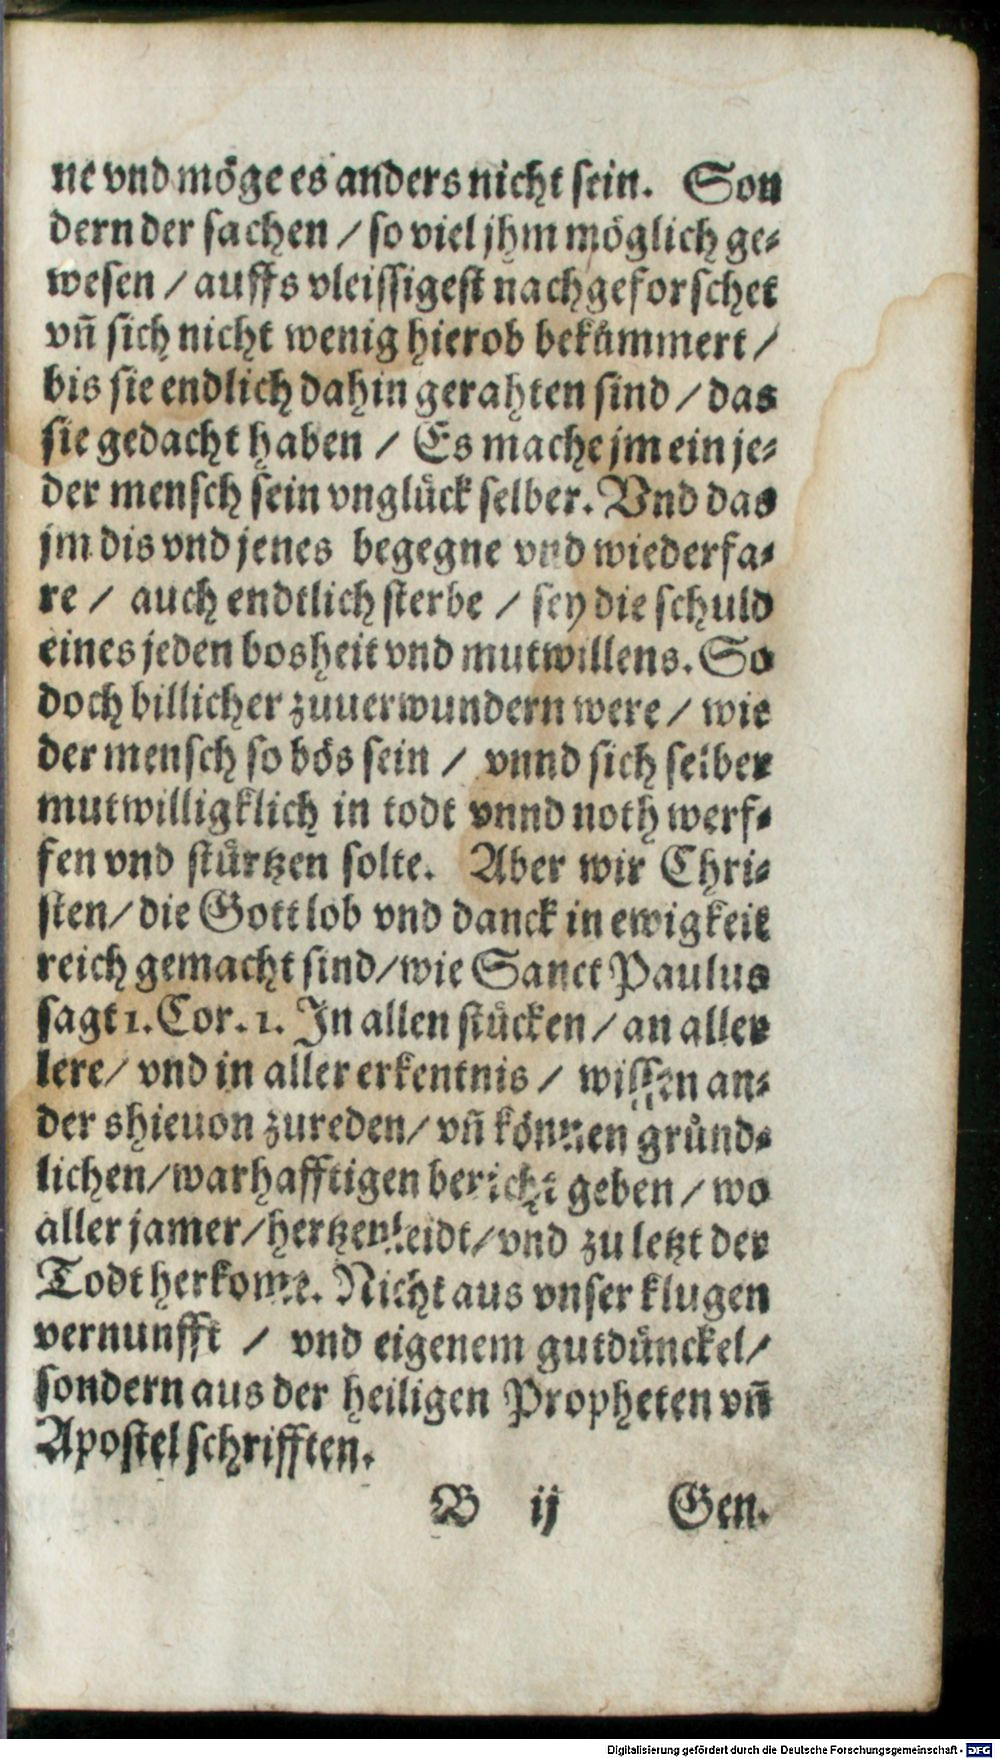 ne vnd möge es anders nicht sein. Son
dern der sachen / so viel jhm möglich ge-
wesen / auffs vleissigest nachgeforschet
vn̄ sich nicht wenig hierob bekümmert /
bis sie endlich dahin gerahten sind / das
sie gedacht haben / Es mache jm ein je-
der mensch sein vnglück selber. Vnd das
jm dis vnd jenes begegne vnd wiederfa-
re / auch endtlich sterbe / sey die schuld
eines jeden bosheit vnd mutwillens. So
doch billicher zuuerwundern were / wie
der mensch so bös sein / vnnd sich selber
mutwilligklich in todt vnnd noth werf-
fen vnd stürtzen solte. Aber wir Chri-
sten / die Gott lob vnd danck in ewigkeit
reich gemacht sind / wie Sanct Paulus
sagt 1. Cor. 1. In allen stücken / an aller
lere / vnd in aller erkentnis / wissen an-
der shieuon zureden / vn̄ können gründ-
lichen / warhafftigen bericht geben / wo
aller jamer / hertzenleidt / vnd zu letzt der
Todt herkome. Nicht aus vnser klugen
vernunfft / vnd eigenem gutdünckel /
sondern aus der heiligen Propheten vn̄
Apostel schrifften.
B ij Gen.
Digitalisierung gefördert durch die Deutsche Forschungsgemeinschaft - DFG